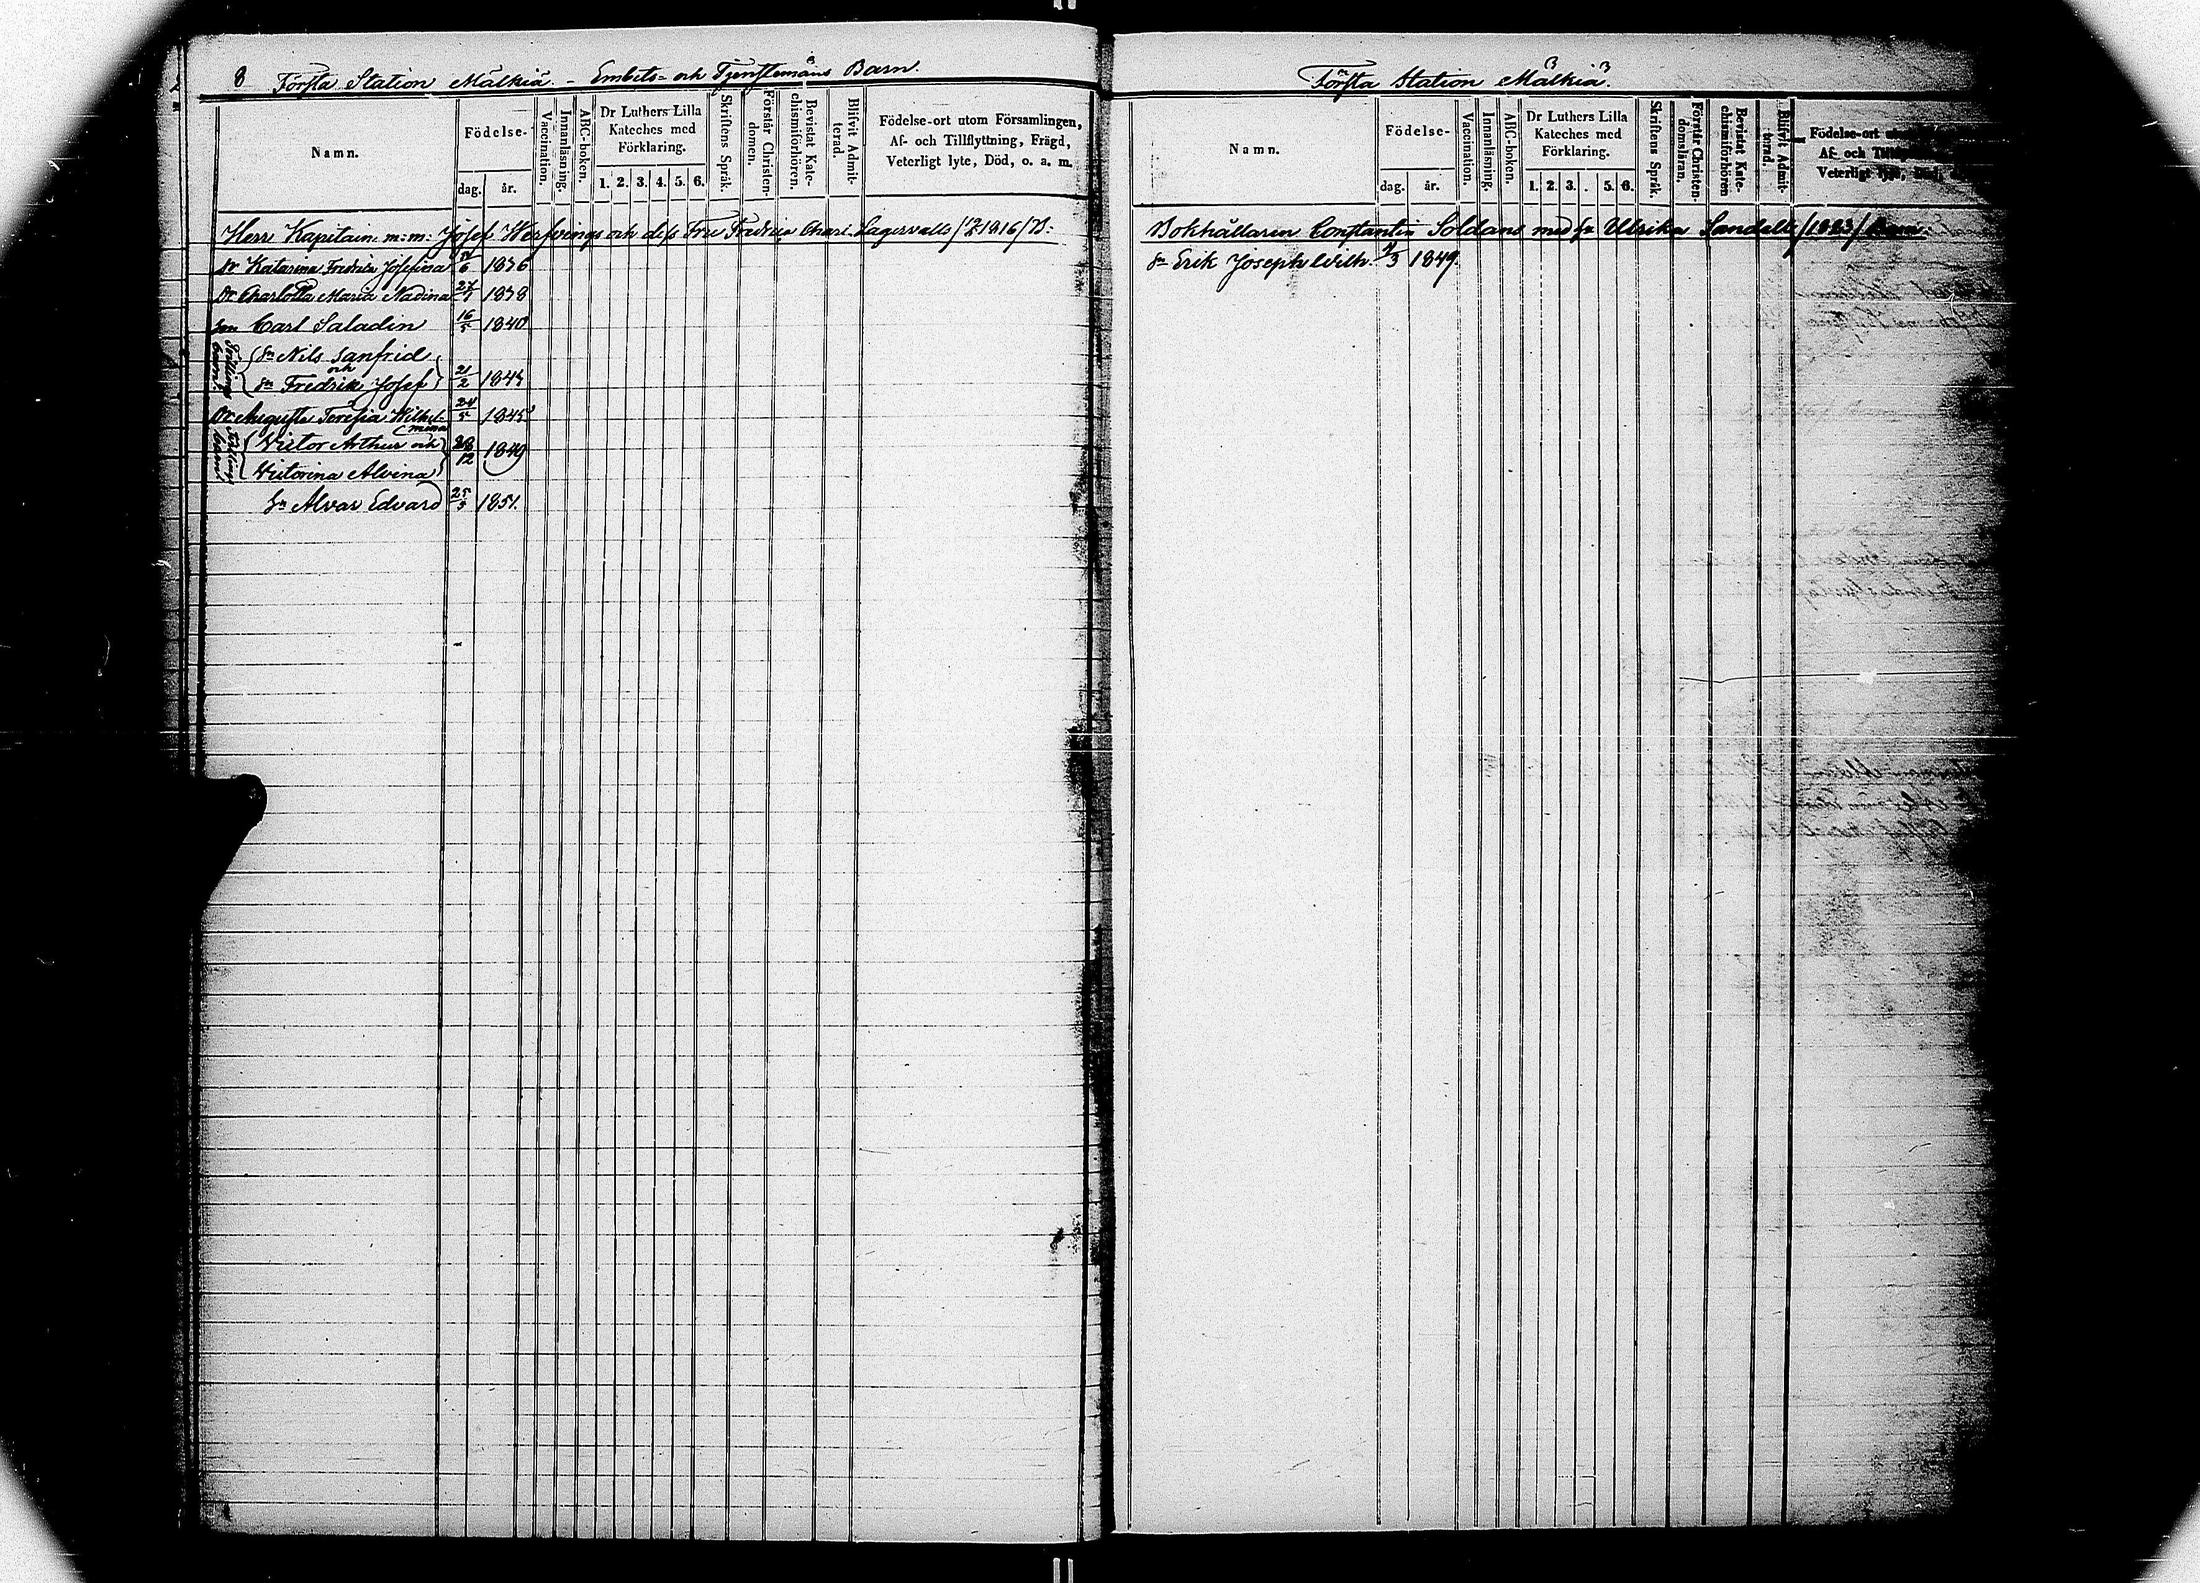 8 Första Station Mälkiä. - Embets- och Tjenstemäns Barn.
Namn.
Födelse-
dag. år.
Vaccination.
Innanläsning.
ABC-boken.
Dr Luthers Lilla
Kateches med
Förklaring.
1. 2. 3. 4. 5. 6.
Skriftens Språk.
Förstår Christen-
domen.
Bevistat Kate-
chismiförhören.
Blifvit Admit-
terad.
Födelse-ort utom Församlingen,
Af- och Tillflyttning, Frägd,
Veterligt lyte, Död, o. a. m.
Herr Kapitain m:m: Josef och dess Fru Fredrica Charl. Lagervalls /12 1816/ B:
Dr Katarina Fredrika Josefina 6 1836
Dr Charlotta Maria Nadina 27 1838
Son Carl Saladin 16/5 1840
Tvilling
barn
Sn Nils Sanfrid
och
Sn Fredrik Josef 21/2 1843
Dr Augusta Teresia Wilhel- 24/5 1845
mina
Tvilling
barn
Victor Arthur och 28/12 1849
Victorina Alvina
Sn Alvar Edvard 25/5 1851.
Första Station Mälkiä.
Namn.
Födelse-
dag. år.
Vaccination.
Innanläsning.
ABC-boken.
Dr Luthers Lilla
Kateches med
Förklaring.
1. 2. 3. . 5. 6.
Skriftens Språk.
Förstår Christen-
domsläran.
Bevistat Kate-
chismiförhören
Blifvit Admit-
terad.
Födelse-ort
Af- och
Veterligt lyte,
Bokhållaren Constantin Soldans med fr Ulrika Sandells /1823/ Barn
Sn Erik Joseph Wilh. 4/3 1849